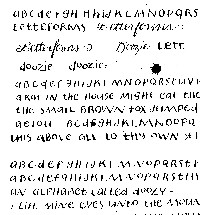 ABCdefGH HhIJKLMNOPQRS
letterforms letterforms
letterforms :) Doozie Lett
doozie doozie
ABCDEFGHIJKLMNOPQRSTUV
in the house might eat the
the small brown fox jumped
BCdEFGHIJKLMNOPQ
this above all to this own
ABCdEFGHIJKLMNOPQRST
ABCdEFGHIJKLMNOPQRST
an alphabet called doozy -
I lift mine eyes unto the